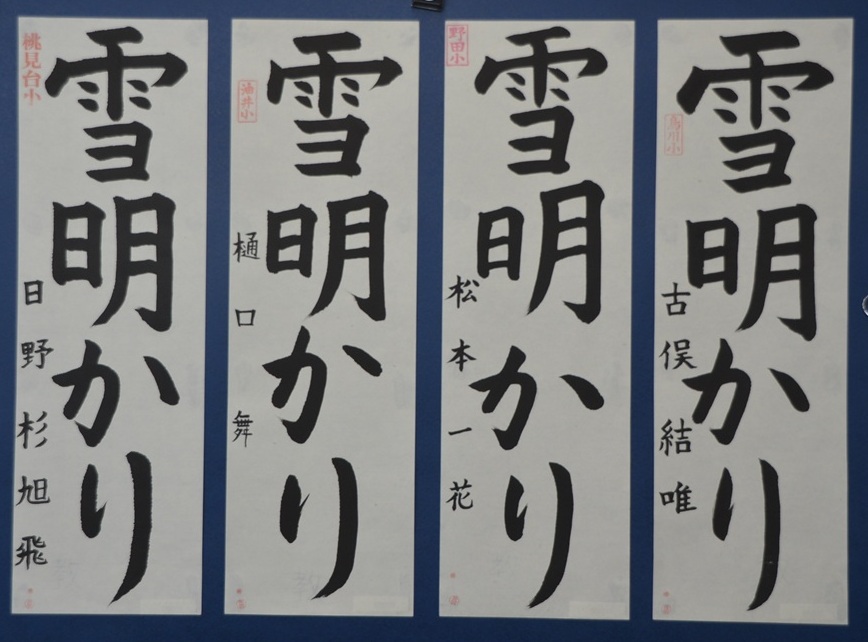 雪明かり
古俣結唯
鳥川小
雪明かり
松本一花
野田小
雪明かり
樋口舞
油井小
雪明かり
日野杉旭飛
桃見台小